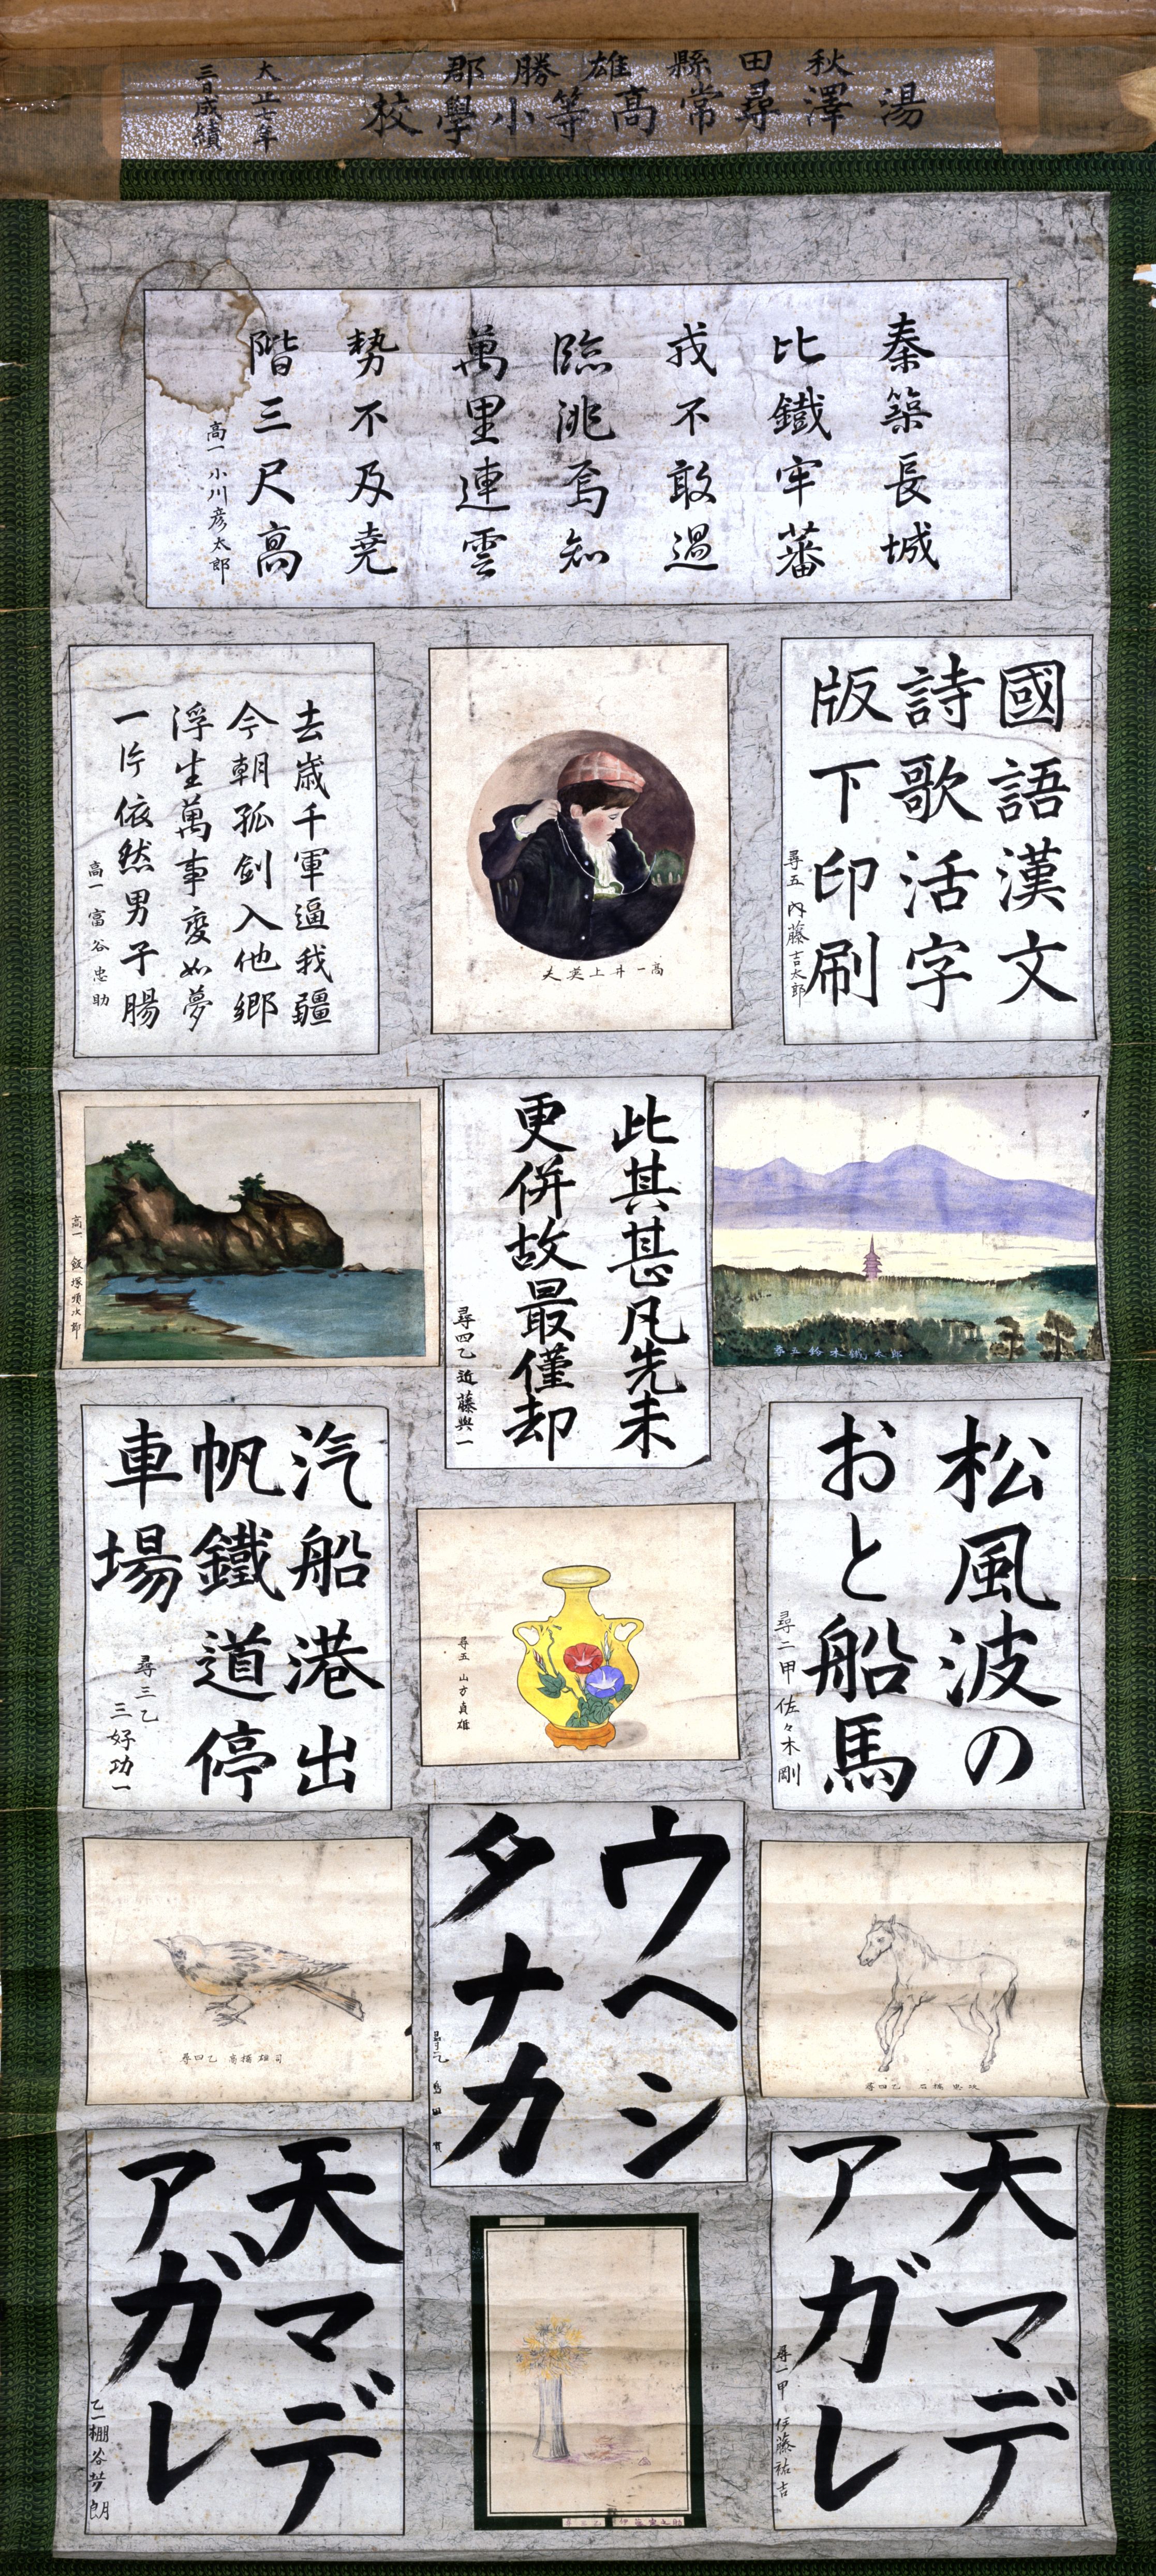 秋田縣雄勝郡
湯澤尋常高等小學校
大正七年
三月成績
秦築長城
比鐵牢蕃
戎不敢過
臨洮焉知
萬里連雲
勢不及堯
階三尺高
高一 小川彦太郎
國語漢文
詩歌活字
版下印刷
尋五 内藤吉太郎
高一 井上英夫
去歳千軍逼我疆
今朝孤剑入他郷
浮生萬事変如夢
一片依然男子腸
高一 富谷忠助
尋五 鈴木鐵太郎
此其甚凡先未
更併故最僅却
尋四乙 近藤與一
高一 飯塚順次郎
松風波の
おと船馬
尋二甲 佐々木剛
尋五 山方貞雄
汽船港出
帆鐵道停
車場
尋三乙
三好功一
尋四乙 石橋忠
ウヘシ
タナカ
尋一乙 島田
尋四乙 高橋雄司
天マデ
アガレ
尋一甲 伊藤祐吉
天マデ
アガレ
乙一 棚谷芳朗